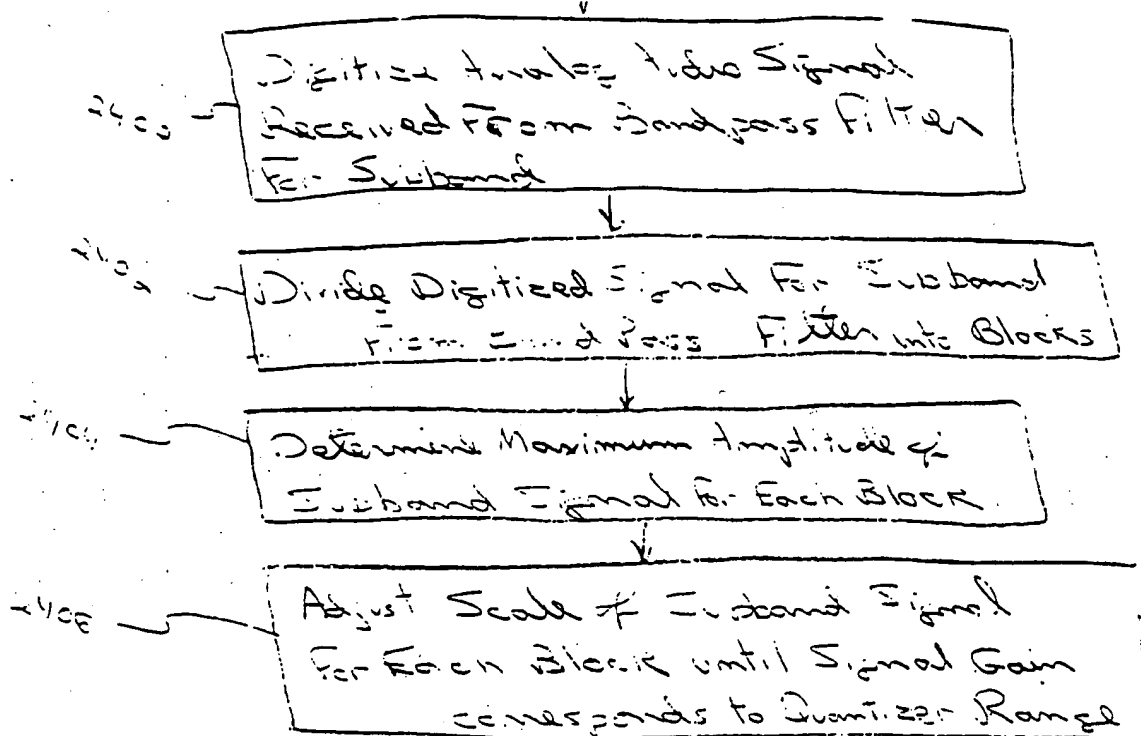 Digitize Analog Audio Signal
Received From Bandpass Filter
For Subband
Divide Digitized Signal For Subband
From Band Pass Filter into Blocks
Determine Maximum Amplitude of
Subband Signal For Each Block
Adjust Scale of Subband Signal
For Each Block until Signal Gain
corresponds to Quantizer Range